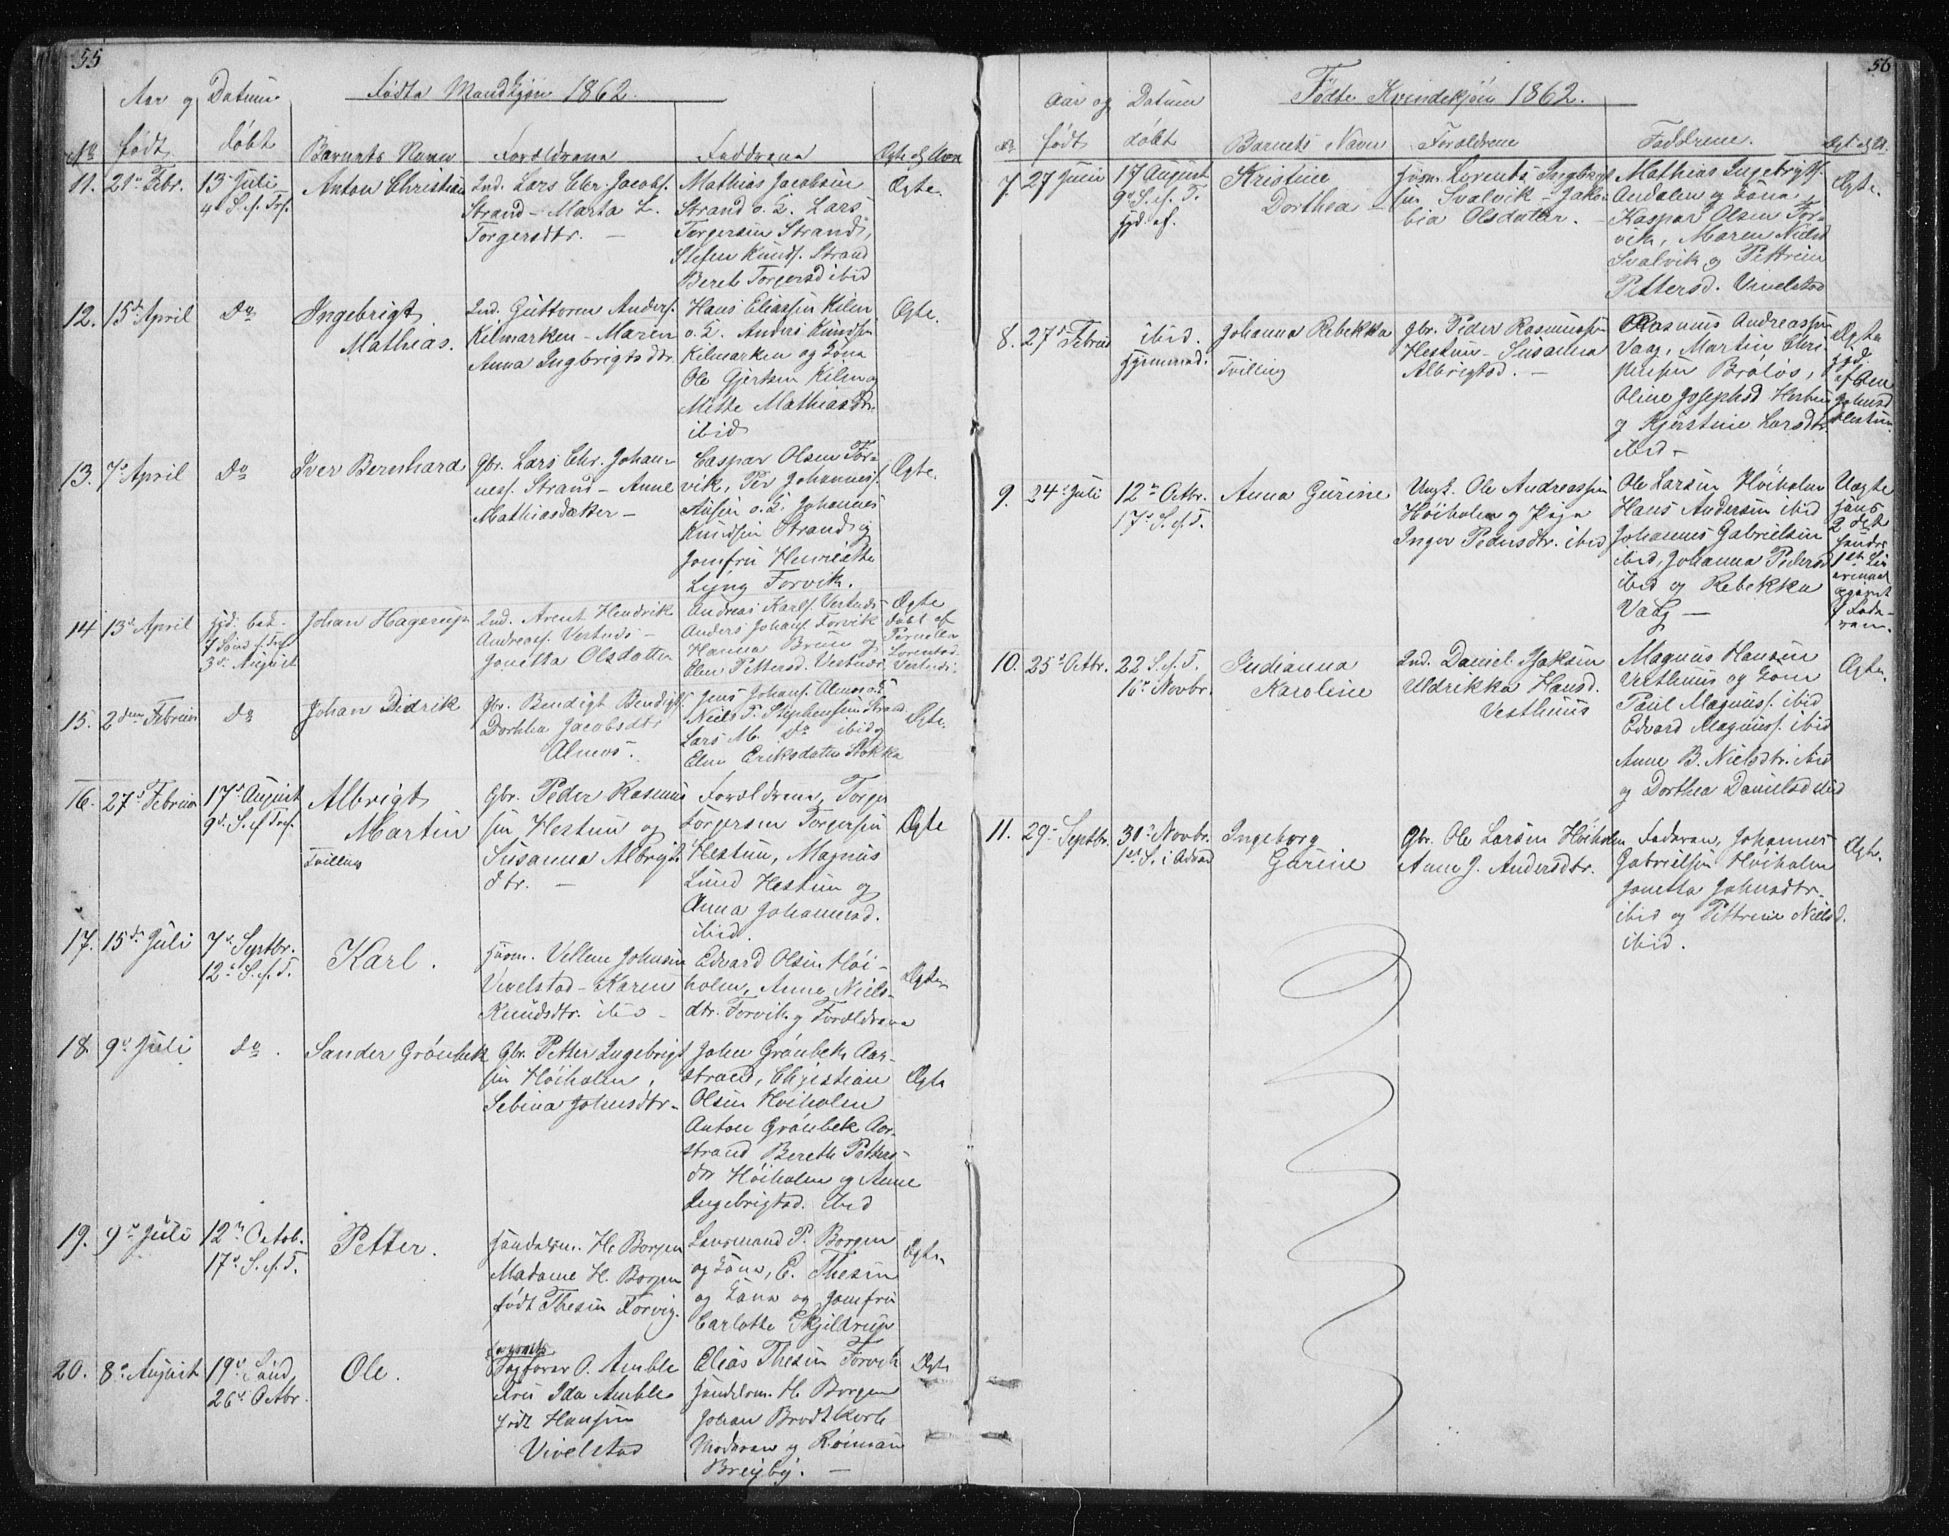 55
Aar og Datum
Födte Mandkjön 1862.
No födt
döbt
Barnets Navn
Forældrene
Faddrene
11. 21de Febr.
13 Juli
4 S. e. Tref.
Anton Christian
Ind. Lars Chr. Jacobs.
Strand – Marta L.
Torgersdtr. –
Mathias Jacobsen
Strand o. K. Lars
Torgersen Strand,
Stefen Knuds. Strand
Beret Torgersd ibid
Ægte.
12. 15de April
Do
Ingebrigt
Mathias.
Ind. Guttorm Anders.
Kilmarken – Maren
Anna Ingbrigtsdtr.
Hans Eliassen Kilen
o. K. Anders Knudsen
Kilmarken og Kona
Ole Gjertsen Kilen og
Mette Mathiasdtr.
ibid
Ægte.
13. 7de April
Do
Iver Bernhard
Gbr. Lars Chr. Johan-
ness. Strand – Anne
Mathiasdatter –
Caspar Olsen For-
vik, Per Johanness.
o. K. Johannes
Knudsen Strand og
Jomfru Henriette
Lyng Forvik.
Ægte.
14 13de April
hjd. bet.
7 Sönd e. Tref
3de August
Johan Hagerup
Ind. Arent Hendrik
Andreas. Vestnes –
Janetta Olsdatter
Andreas Karls. Vestnes
Anders Johans. Forvik
Hanna Bruun og
Elen Pettersd. Vestnes
Ægte
döbt af
Pernelle
Lorentsd.
Vestnes.
15. 2den Februar
Do
Johan Didrik
Gbr. Bendigt Bendigts.
Dorthea Jacobsdtr
Almos.
Jens Johans. Almos o. K.
Niels P. Stephensen Strand
Lars M. Do ibid og
Elen Eriksdatter Stokka
Ægte.
16. 27de Februar
17de August
9de S. ef Tref.
Albrigt
Martin
Tvilling
Gbr. Peder Rasmus
sen Hestun og
Susanna Albrigts
dtr. –
Forældrene, Torger
Torgersen Torgersen
Hestun, Magnus
Lund Hestun og
Anna Johannesd.
ibid.
Ægte
17. 15de Juli
7de Septbr.
12te S. e. T.
Karl.
Huusm. Vellum Johnsen
Vivelstad – Karen
Knudsdtr. ibid –
Edvard Olsen Höi-
holm, Anne Niels-
dtr. Forvik og Forældrene
Ægte
18. 9de Juli
do.
Sander Grönbek
Gbr. Petter Ingebrigt
sen Höiholm,
Sebina Johnsdtr –
John Grönbek Aar-
strand, Christian
Olsen Höiholm
Anton Grönbek Aar-
strand Bereth Petters-
dtr Höiholm og Anne
Ingebrigtsd. ibid
Ægte
19. 9de Juli
12te Octob.
17de S. e. T.
Petter.
Handelsm. H. Borgen
Madame H. Borgen
födt Thesen Forvig.
Lensmand P. Borgen
og Kone, E. Thesen
og Kone og Jomfru
Carlotte Skjeldrup
Ægte
20. 8de August
19de Sönd.
26de Octbr.
Ole.
Sagförer O. Amble
Fru Ida Amble
födt Hansen
Vivelstad
Elias Thesen Forvik
Handelsm. H. Borgen
Johan Brodtkorb
Moderen og
Ægte
56
Aar og Datum
Födte Kvindekjön 1862.
No födt
döbt
Barnets Navn
Forældrene
Faddrene.
7. 27 Juni
17 August
9de S. ef. T.
hjd. af.
Kristine
Dorthea –
Huusm. Lorents Ingbrigt
sen Svalvik – Jako-
bia Olsdatter.
Mathias Ingebrigts.
Andalen og Kona
Kaspar Olsen For-
vik, Maren Nielsd
Svalvik og Pettrine
Pettersd. Vivelstad
Ægte.
8. 27de Februar
ibid.
hjemmed.
Johanna Rebekka
Tvilling
Gbr. Peder Rasmussen
Hestun – Susanna
Albrigtsd. –
Rasmus Andreassen
Vaag, Martin Chri-
stensen Brölös,
Oline Josephsd Hestun
og Kjerstine Larsdtr.
ibid –
Ægte
hjd.
af Ane
Johnsd
Hestun.
9. 24de Juli
12te Octbr.
17de S. ef T.
Anna Gurine
Ungk. Ole Andreassen
Höiholm og Pige
Inger Pedersdtr. ibid
Ole Larsen Höiholm
Hans Andersen ibid
Johannes Gabrielsen
ibid, Johanna Pedersd
ibid og Rebekka
Vaag –
Uægte
hans
2det
hendes
1ste
10. 25de Octbr.
22 S. e. T.
16de Novbr.
Indianna
Karoline
Ind. Daniel Isaksen
Uldrikka Hansd.
Vesthuus
Magnus Hansen
Vesthuus og Kone
Paul Magnuss. ibid
Edvard Magnuss. ibid
Anne B. Nielsdtr. ibid
og Dorthea Danielsd ibid
Ægte.
11. 29de Septbr.
30te Novbr.
1ste S. i Advend
Ingeborg
Gurine
Gbr. Ole Larsen Höiholm
Anne J. Andersdtr.
Faderen, Johannes
Gabrielsen Höiholm
Janetta Johnsdtr.
ibid og Pettrine Nielsd.
ibid.
Ægte.